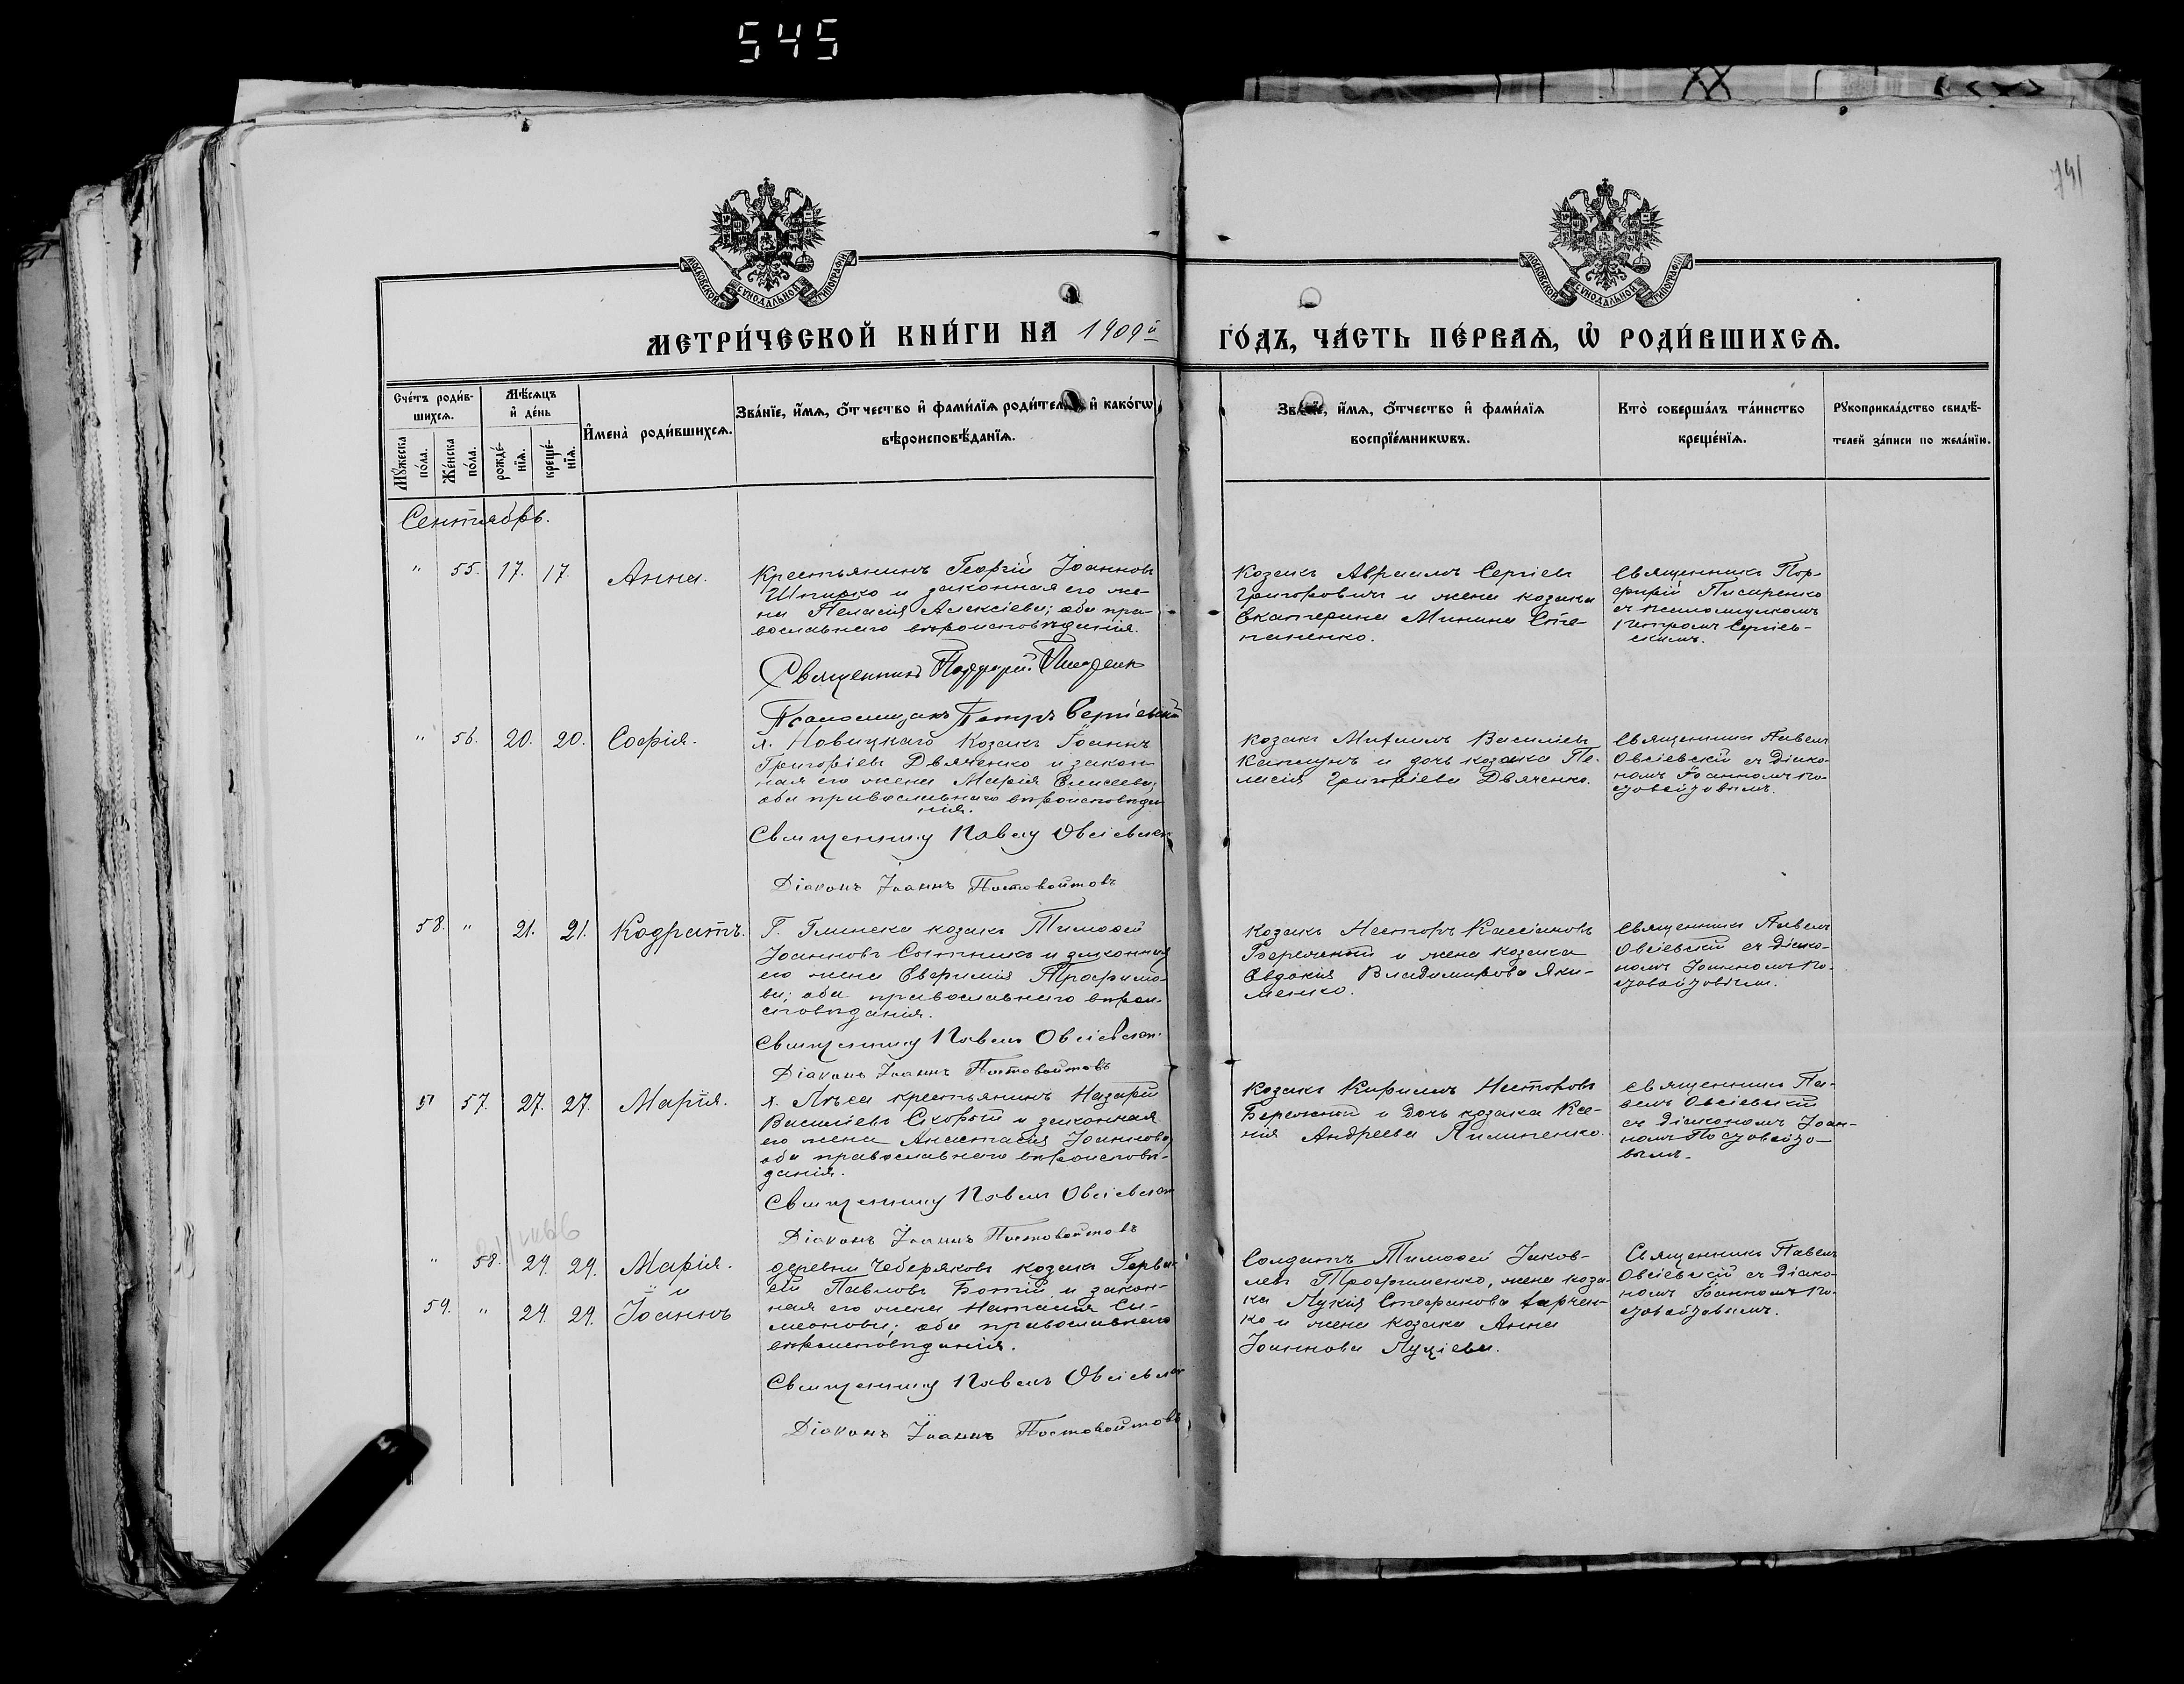 545
741
МОСКОВСКОЙ СѴНОДАЛЬНОЙ ТИПОГРАФІИ
МОСКОВСКОЙ СѴНОДАЛЬНОЙ ТИПОГРАФІИ
МЕТРИ́ЧЕСКОЙ КНИ́ГИ НА 1909й ГО́ДЪ, ЧА́СТЬ ПЕ́РВАѦ, Ѡ҆ РОДИ́ВШИХСѦ.
Сче́тъ роди́в-
шихсѧ.
Мꙋ́жеска по́ла.
Же́нска по́ла.
Мѣ́сѧцъ
и҆ де́нь
рожде́-
нїѧ.
креще́-
нїѧ.
И҆мена̀ роди́вшихсѧ.
Зва́нїе, и҆́мѧ, ѻ҆́тчество и҆ фами́лїѧ роди́телей, и҆ како́гѡ
вѣроисповѣ́данїѧ.
Зва́нїе, и҆́мѧ, ѻ҆́тчество и҆ фами́лїѧ
воспрїе́мникѡвъ.
Кто̀ соверша́лъ та́инство
креще́нїѧ.
Рꙋкоприкла́дство свидѣ́-
телей за́писи по жела́нїю.
Сентябрь.
" 55. 17. 17. Анна.
Крестьянинъ Георгій Іоанновъ
и законная его же-
на Пелагія Алексіева; оба пра-
вославнаго вѣроисповѣданія.
Священникъ Порфирій Писаренко
Псаломщикъ Петръ Сергіевскій
Козакъ Авраамъ Сергіевъ
Григоровичъ и жена козака
Екатерина Минина Сте-
паненко.
Священникъ Пор-
фирій Писаренко
съ псаломщикомъ
Петромъ Сергіев-
скимъ.
" 56. 20. 20. Софія.
х. Новицкаго Козакъ Іоаннъ
Григоріевъ Двяченко и закон-
ная его жена Марія Елисеева;
оба православнаго вѣроисповѣда
нія.
Священникъ Павелъ Овсіевскій
Діаконъ Іоаннъ Постовойтовъ
Козакъ Михаилъ Василіевъ
Капшунъ и дочь козака Пе-
лагія Григоріева Двяченко.
Священникъ Павелъ
Овсіевскій съ Діако-
номъ Іоанномъ По-
стовойтовымъ.
58. " 21. 21. Кодратъ.
Г. Глинска козакъ Тимоѳей
Іоанновъ Сотникъ и законная
его жена Евфимія Трофимо-
ва; оба православнаго вѣрои-
сповѣданія.
Священникъ Павелъ Овсіевскій
Діаконъ Іоаннъ Постовойтовъ
Козакъ Несторъ Кассіановъ
Бережный и жена козака
Евдокія Владимирова Яки-
менко.
Священникъ Павелъ
Овсіевскій съ Діако-
номъ Іоанномъ По-
стовойтовымъ.
" 57. 27. 27. Марія.
х. Лѣса крестьянинъ Назарій
Василіевъ Скорый и законная
его жена Анастасія Іоаннова,
оба православнаго вѣроисповѣ-
данія.
Священникъ Павелъ Овсіевскій
Діаконъ Іоаннъ Постовойтовъ
Козакъ Кириллъ Несторовъ
Бережный и дочь козака Ксе-
нія Андреева Пилипенко.
Священникъ Па-
велъ Овсіевскій
съ діакономъ Іоан-
номъ Постовойто-
вымъ.
" 58. 29. 29. Марія.
и
59. " 29. 29. Іоаннъ
деревни Чеберяковъ козакъ Герва-
сій Павловъ Ботій и закон-
ная его жена Наталія Си-
меонова; оба православнаго
вѣроисповѣданія.
Священникъ Павелъ Овсіевскій
Діаконъ Іоаннъ Постовойтовъ
Солдатъ Тимоѳей Іаков-
левъ Трофименко, жена коза-
ка Лукія Стефанова Харчен-
ко и жена козака Анна
Іоаннова Луціева.
Священникъ Павелъ
Овсіевскій съ Діако-
номъ Іоанномъ По-
стовойтовымъ.